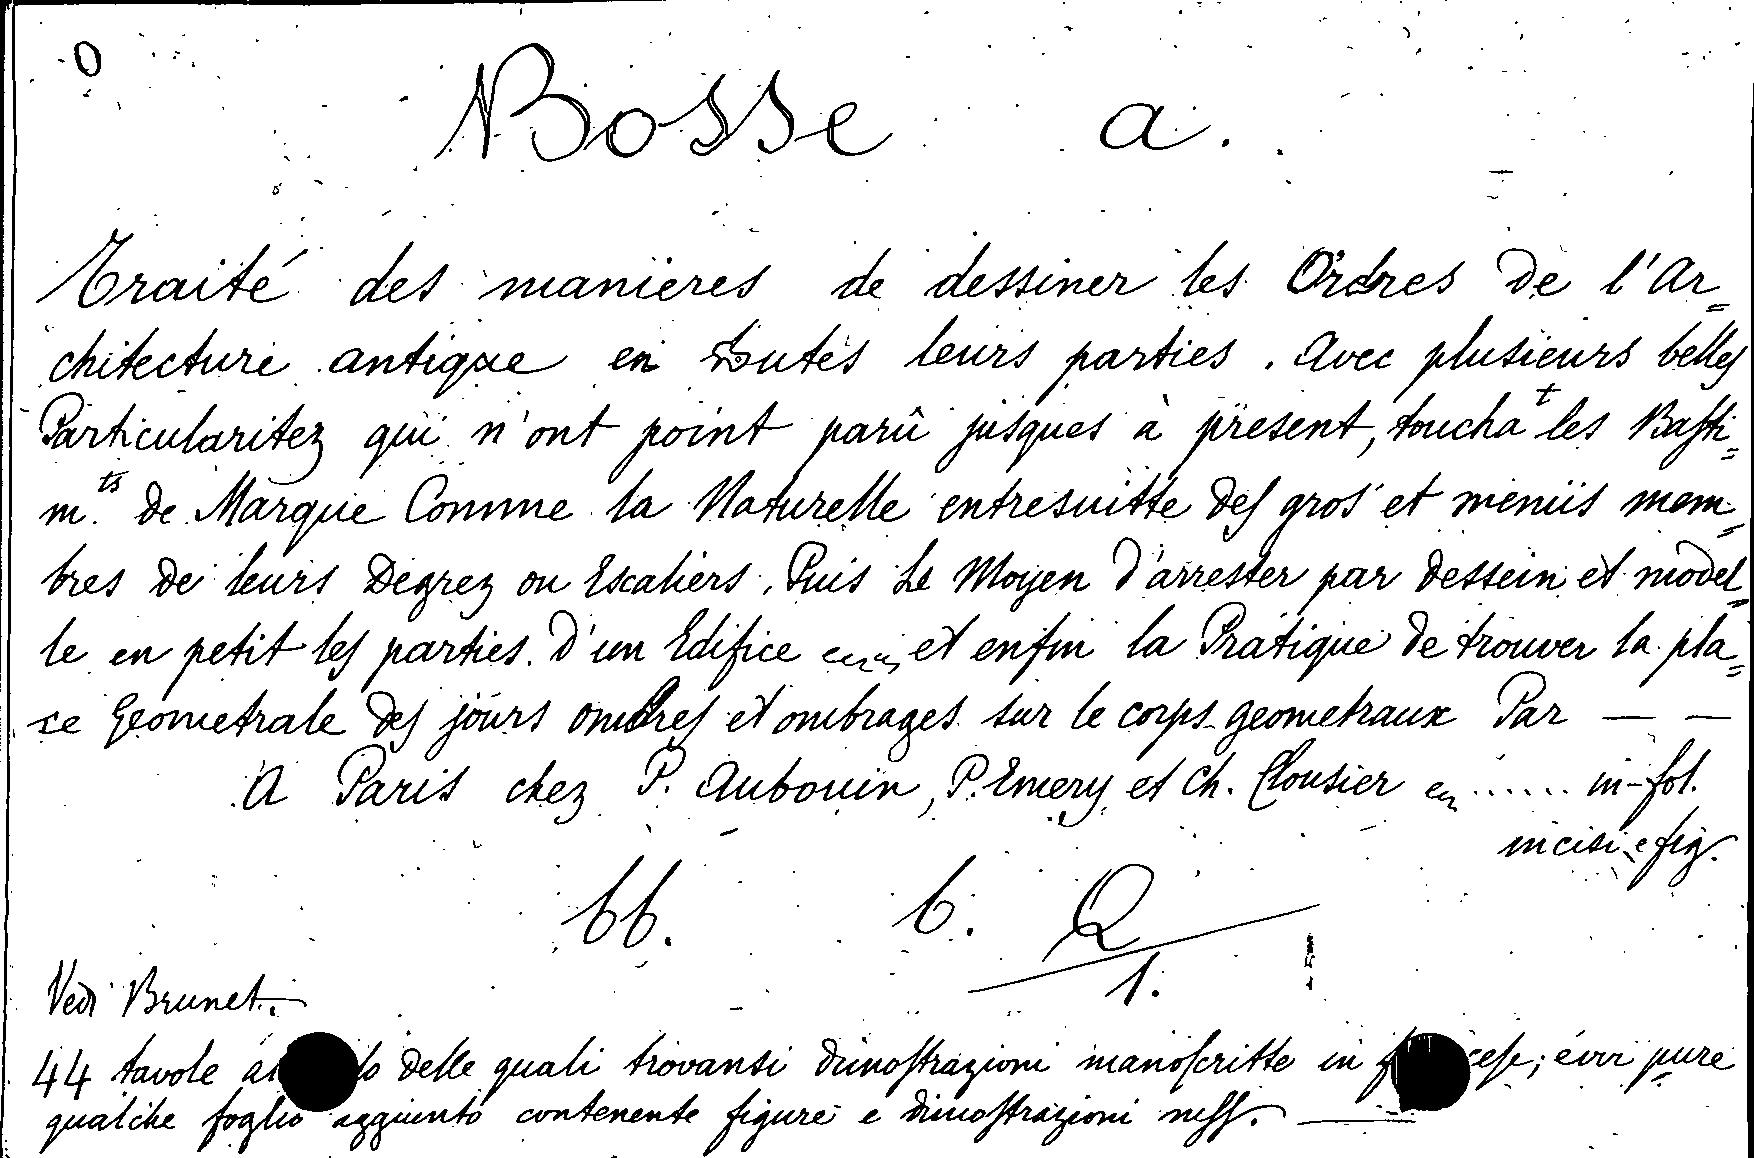 O
Bosse a.
Traité des manieres de dessiner les Ordres de l'Ar=
chitecture antique en toutes leurs parties. Avec plusieurs belles
Particularitez qui n'ont point parû jusques à present, toucha^t les Basti=
m.^ts de Marque Comme la Naturelle entresuitte des gros et menus mem=
bres de leurs Degrez ou Escaliers. Puis Le Moyen d'arrester par dessein et model=
le en petit les parties d'un Edifice et enfin la Pratique de trouver la pla=
ce Geometrale des jours ombres et ombrages sur le corps geometraux Par — —
A Paris chez P. Aubouin, P. Emery et Ch. Clousier ...... in-fol.
incisi e fig.
bb. 6. Q
1.
Vedi Brunet.
44 tavole delle quali trovansi dimostrazioni manoscritte in evvi pure
qualche foglio aggiunto contenente figure e dimostrazioni mss. —